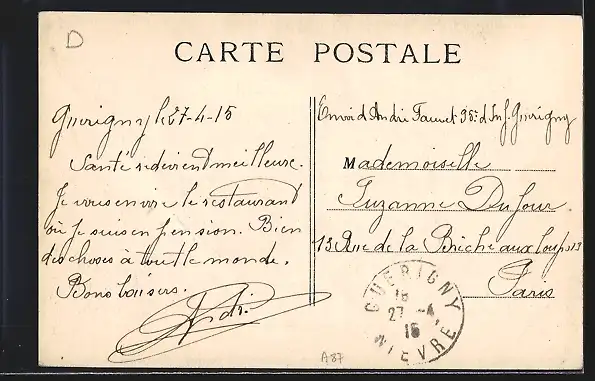 D
CARTE POSTALE
Guérigny le 27-4-15
Santé redevient meilleure.
Je vous envoie le restaurant
où je suis en pension. Bien
des choses à tout le monde.
Bons baisers.
André
Envoi d'André Fauvet 95e d'Inf. Guérigny
Mademoiselle
Suzanne Dufour
13 Rue de la Brèche aux loups 13
Paris
GUERIGNY
27 -4
15
NIEVRE
A87